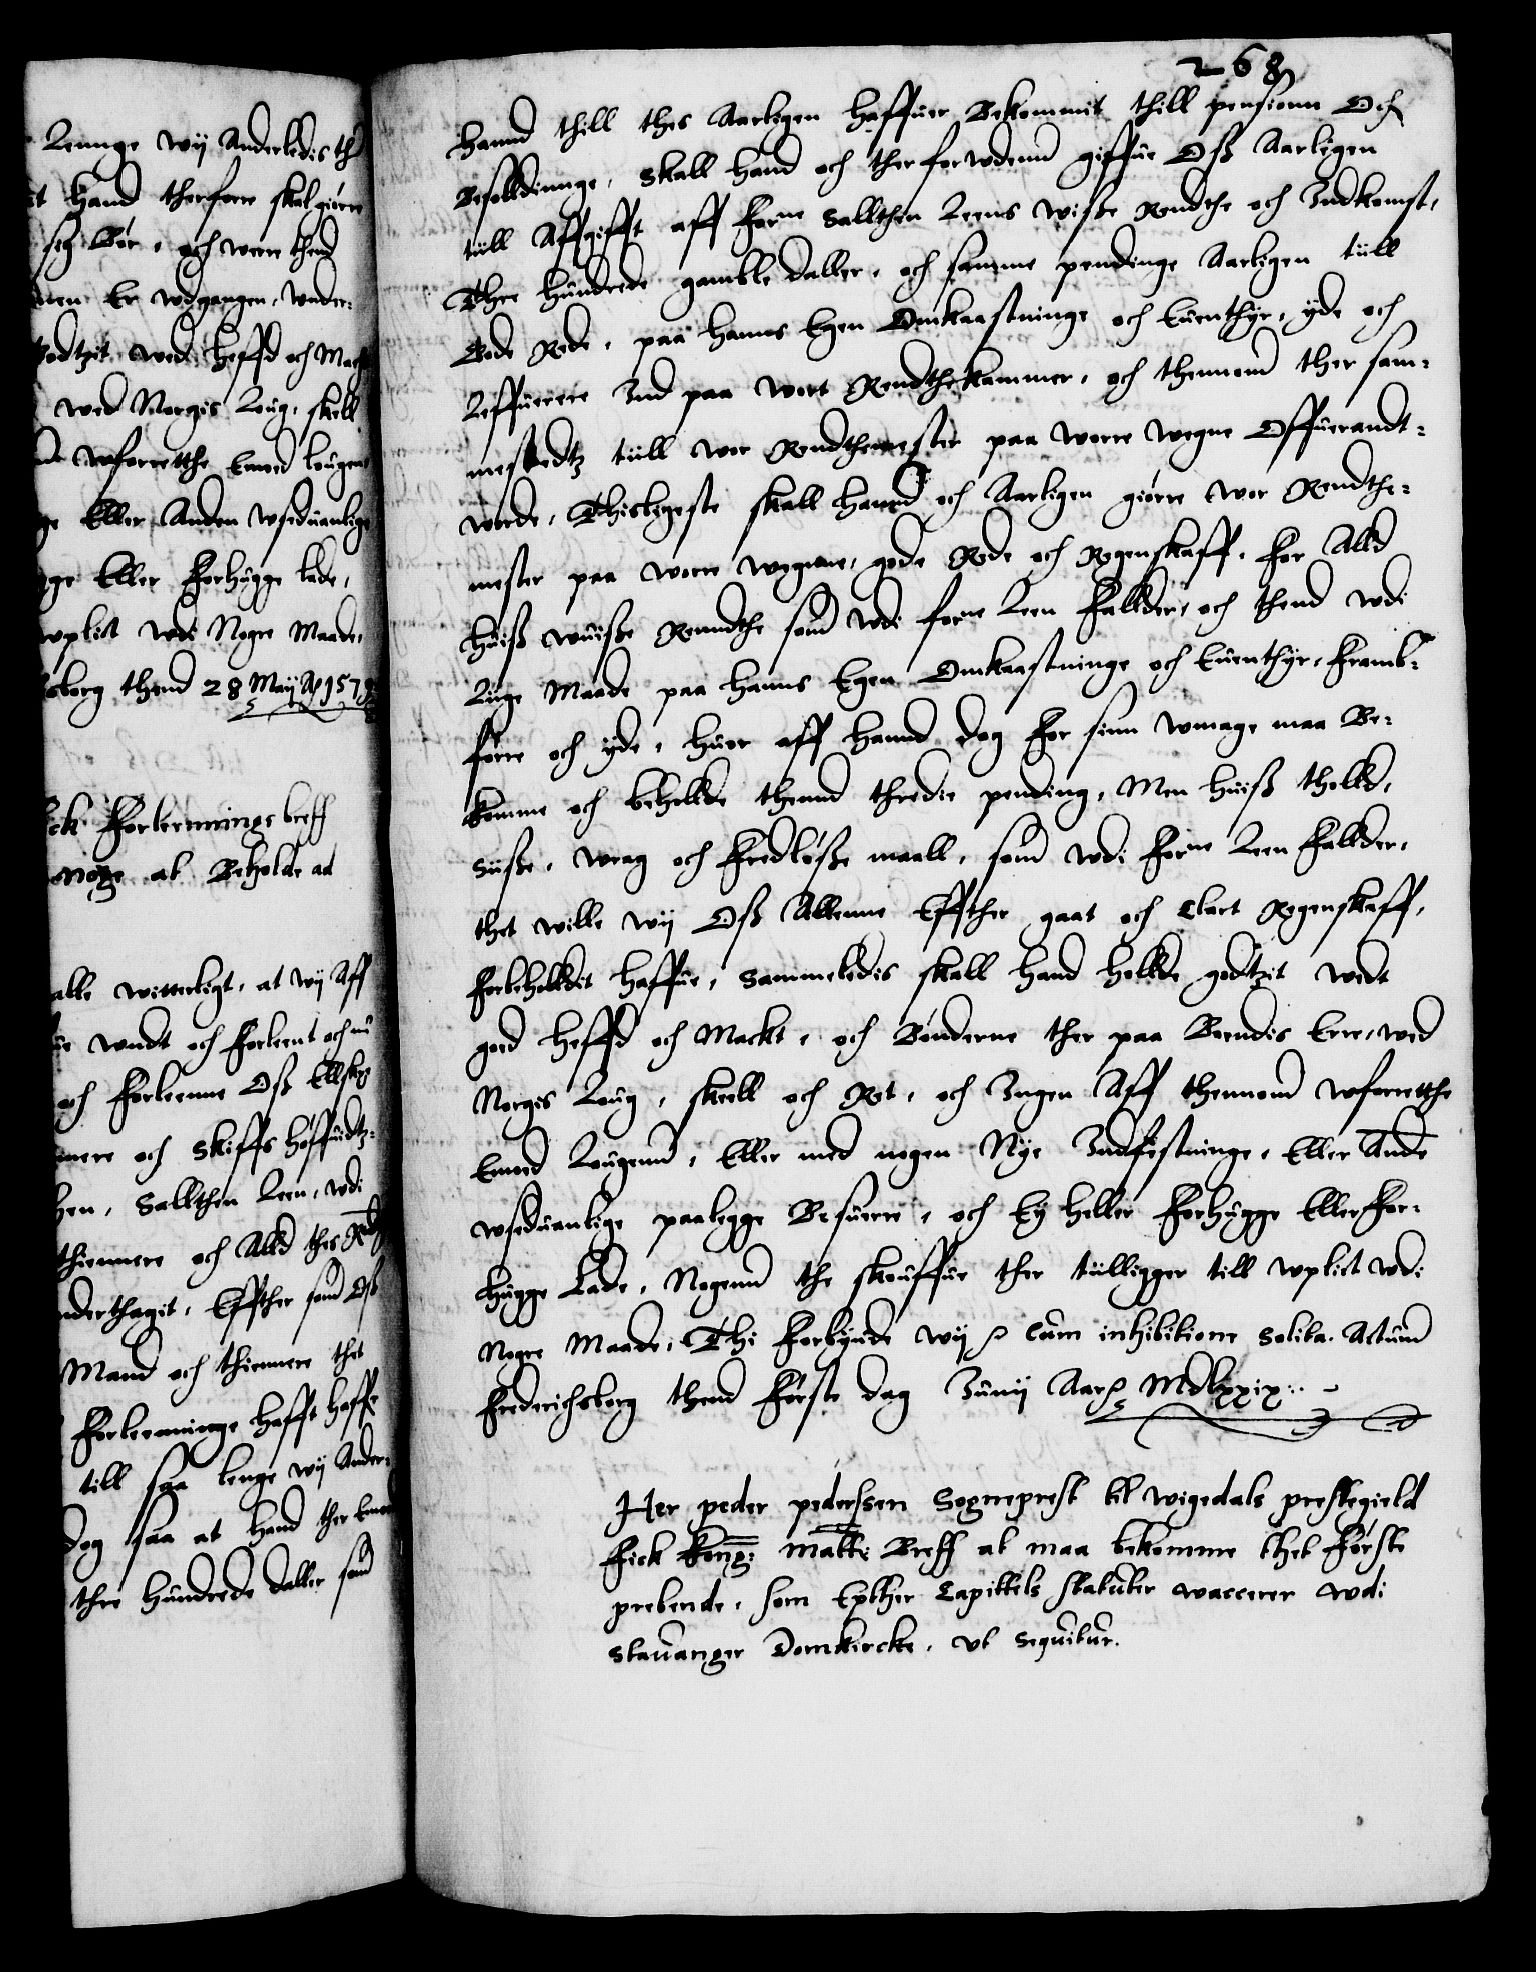 Lennge wij Anderledis th
t hand therforre skal giørre
sig Bør, och were thend
nen Er wdgangen, Wnder-
godtzit wed heffd och Mag
wed Norgis Loug, skell
wforretthe Emod Lougen
ge Eller Anden wseduanlige
ge Eller Forhugge lade,
wplict wdi Nogre Maade,
sborg thend 28 Maij Ap 1579
ick Forlenningsbreff
Noge at Beholde ad
alle witterligt, at wij Aff
ue wndt och Forleent och nu
och Forleenne Oß Elskg
nere och Skiffs høffuidtz-
hen, Sallthen Leen, wdi
thiennere och Alld thes Rndt
nderthagit, Effther som Oß
Mand och thiennere thet
Forleeninge hafft haffr
till saa lenge wij Ander-
dog saa at hand ther Emod
thre hundrede daller som
268
hannd thill thes Aarligen haffuer Bekommit thill pensionn Och
Besolldinnge, Skall hand och ther forwdenn giffue Oß Aarligen
till Affgifft aff forne Sallthen Leens wisße Rendthe och Indkomst,
Thre hundrede gamble daller, och samme pendinge Aarligen till
Gode Rede, paa hanns Egen Omkaastninge och Euenthyr, yde och
Leffuerere Ind paa wort Rendthekammer, och thennom ther sam-
mestedtz till wor Rendthemester paa worre wegne Offuerandt-
worde, Thisligeste skall hannd och Aarligen giørre wor Rendthe-
mester paa worre wegnne, gode Rede och Regenskaff, For Alld
huiß wuisße Renndthe som wdi forne Leen Fallder, och thend wdi
Liige Maade paa hanns Egen Omkaastninge och Euenthyr, Framb-
førre och yde, huor aff hannd dog for sinn wmage maa Be-
komme och beholde thennd thredie pending, Men huiß thold,
Siiße, wrag och Fredløße maall, som wdi Forne Leen Fallder,
thet wille wij Oß Allenne Effther gaat och Clart Regenskaff,
Forbeholldit haffue, Sammeledis skall hand hollde godtzit wedt
god heffd och Mackt, och Bønderne ther paa Boendis Erre, wed
Norgis Loug, skeell och Ret, och Ingen Aff thennom wforretthe
Emod Lougenn, Eller med nogen Nye Indfestninge, Eller Ande
wseduanlige paalegge Besuerre, och Ey heller Forhugge Eller For-
hugge Lade, Nogenn the skouffue ther tilligger till wplict wdi
Nogre Maade, Thi Forbyude wij Cum inhibitione Solita. Actum
Frederichsborg thend Første dag Junij Aar Mdlxxix
Her peder pederssen Sogneprest til wigedals prestegield
Fick Kong: Matts Breff at maa bekomme thet Første
prebende, som Epther Capittels statuter waccerer wdi
Stauanger Domkircke, ut sequitur.